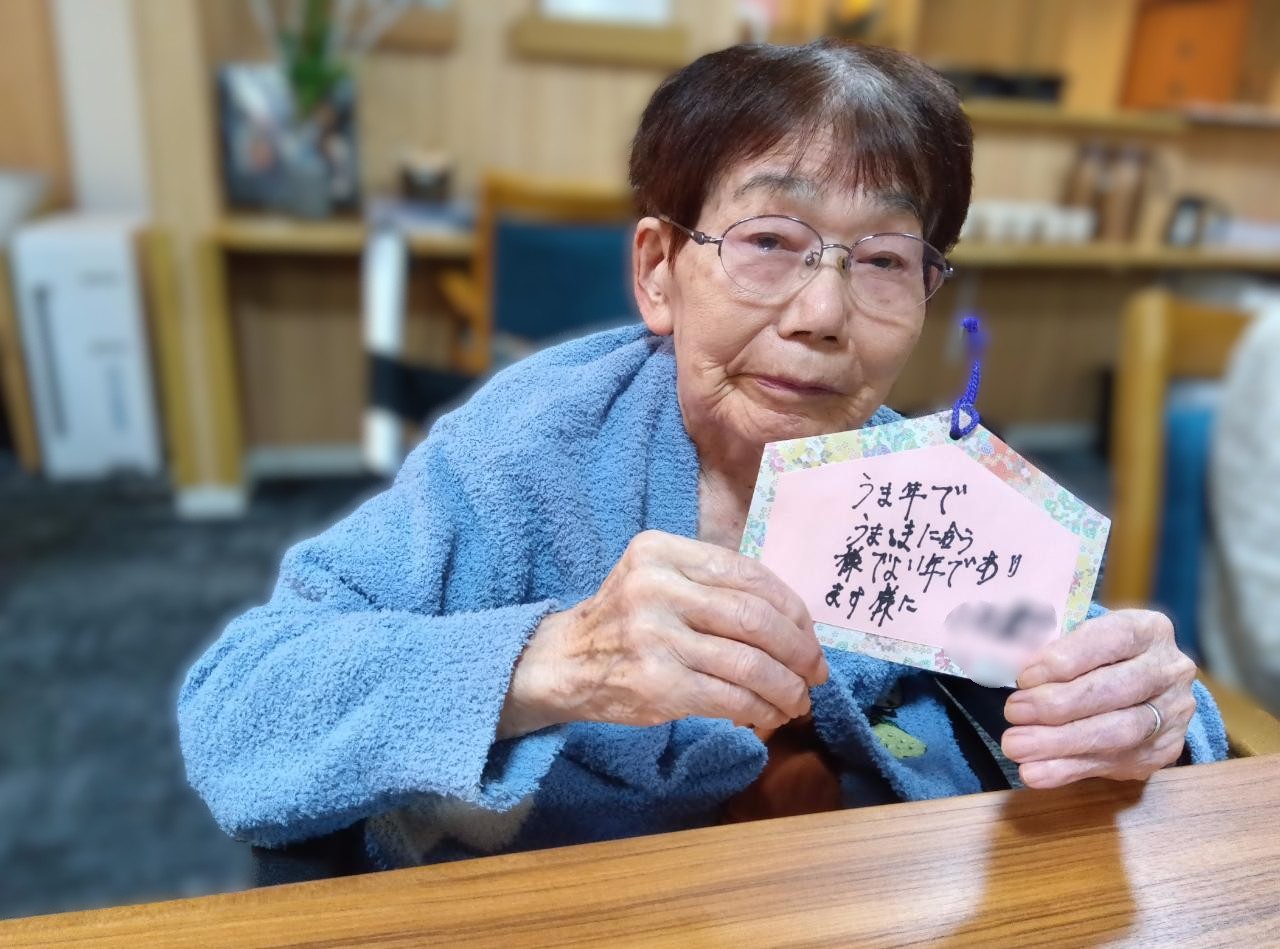 うま年で
うまるまに合う
様でない年であり
ます様に